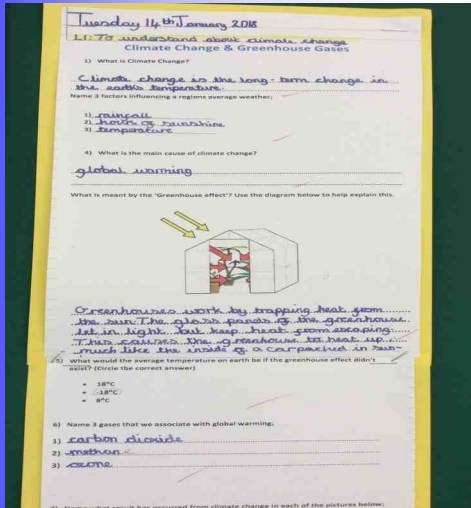 Tuesday 14th January 2018
LI: To understand about climate change
Climate Change & Greenhouse Gases
1) What is Climate Change?
Climate change is the long-term change in
the earth's temperature.
Name 3 factors influencing a regions average weather;
1) rainfall
2) hours of sunshine
3) temperature
4) What is the main cause of climate change?
global warming
What is meant by the 'Greenhouse effect'? Use the diagram below to help explain this.
Greenhouses work by trapping heat from
the sun. The glass panels of the greenhouse
let in light but keep heat from escaping.
This causes the greenhouse to heat up
much like the inside of a car parked in sun-
5) What would the average temperature on earth be if the greenhouse effect didn't
exist? (Circle the correct answer)
18°C
-18°C
8°C
6) Name 3 gases that we associate with global warming;
1) carbon dioxide
2) methan
3) ozone
what result has occurred from climate change in each of the pictures below;